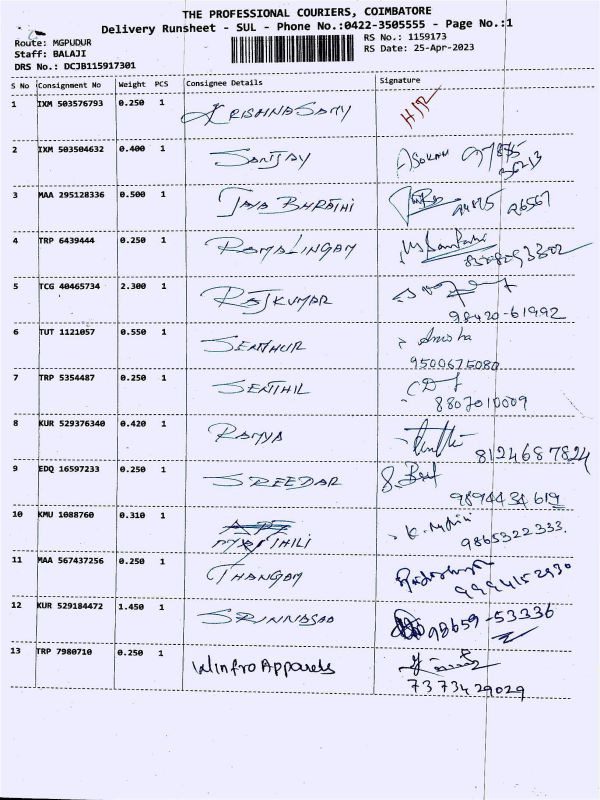 THE PROFESSIONAL COURIERS, COIMBATORE
Delivery Runsheet - SUL - Phone No.:0422-3505555 - Page No.:1
Route: MGPUDUR
RS No.: 1159173
Staff: BALAJI
RS Date: 25-Apr-2023
DRS No.: DCJB115917301
S No Consignment No Weight PCS Consignee Details Signature
1 IXM 503576793 0.250 1 KRISHNASAMY
2 IXM 503504632 0.400 1 SANJAY ASOKAN
3 MAA 295128336 0.500 1 JAYA BHRATHI 26567
4 TRP 6439444 0.250 1 RAMALINGAM
5 TCG 40465734 2.300 1 RAJKUMAR
98420-61992
6 TUT 1121057 0.550 1 SENTHUR Anisha
9500675080
7 TRP 5354487 0.250 1 SENTHIL
8807010009
8 KUR 529376340 0.420 1 RAMYA
8124687824
9 EDQ 16597233 0.250 1 SREEDAR
9894434619
10 KMU 1088760 0.310 1
MYTHILI 9865322333
11 MAA 567437256 0.250 1 THANGAM
9994152930
12 KUR 529184472 1.450 1 98659-53336
13 TRP 7980710 0.250 1 Winfro Apparels
7373429029